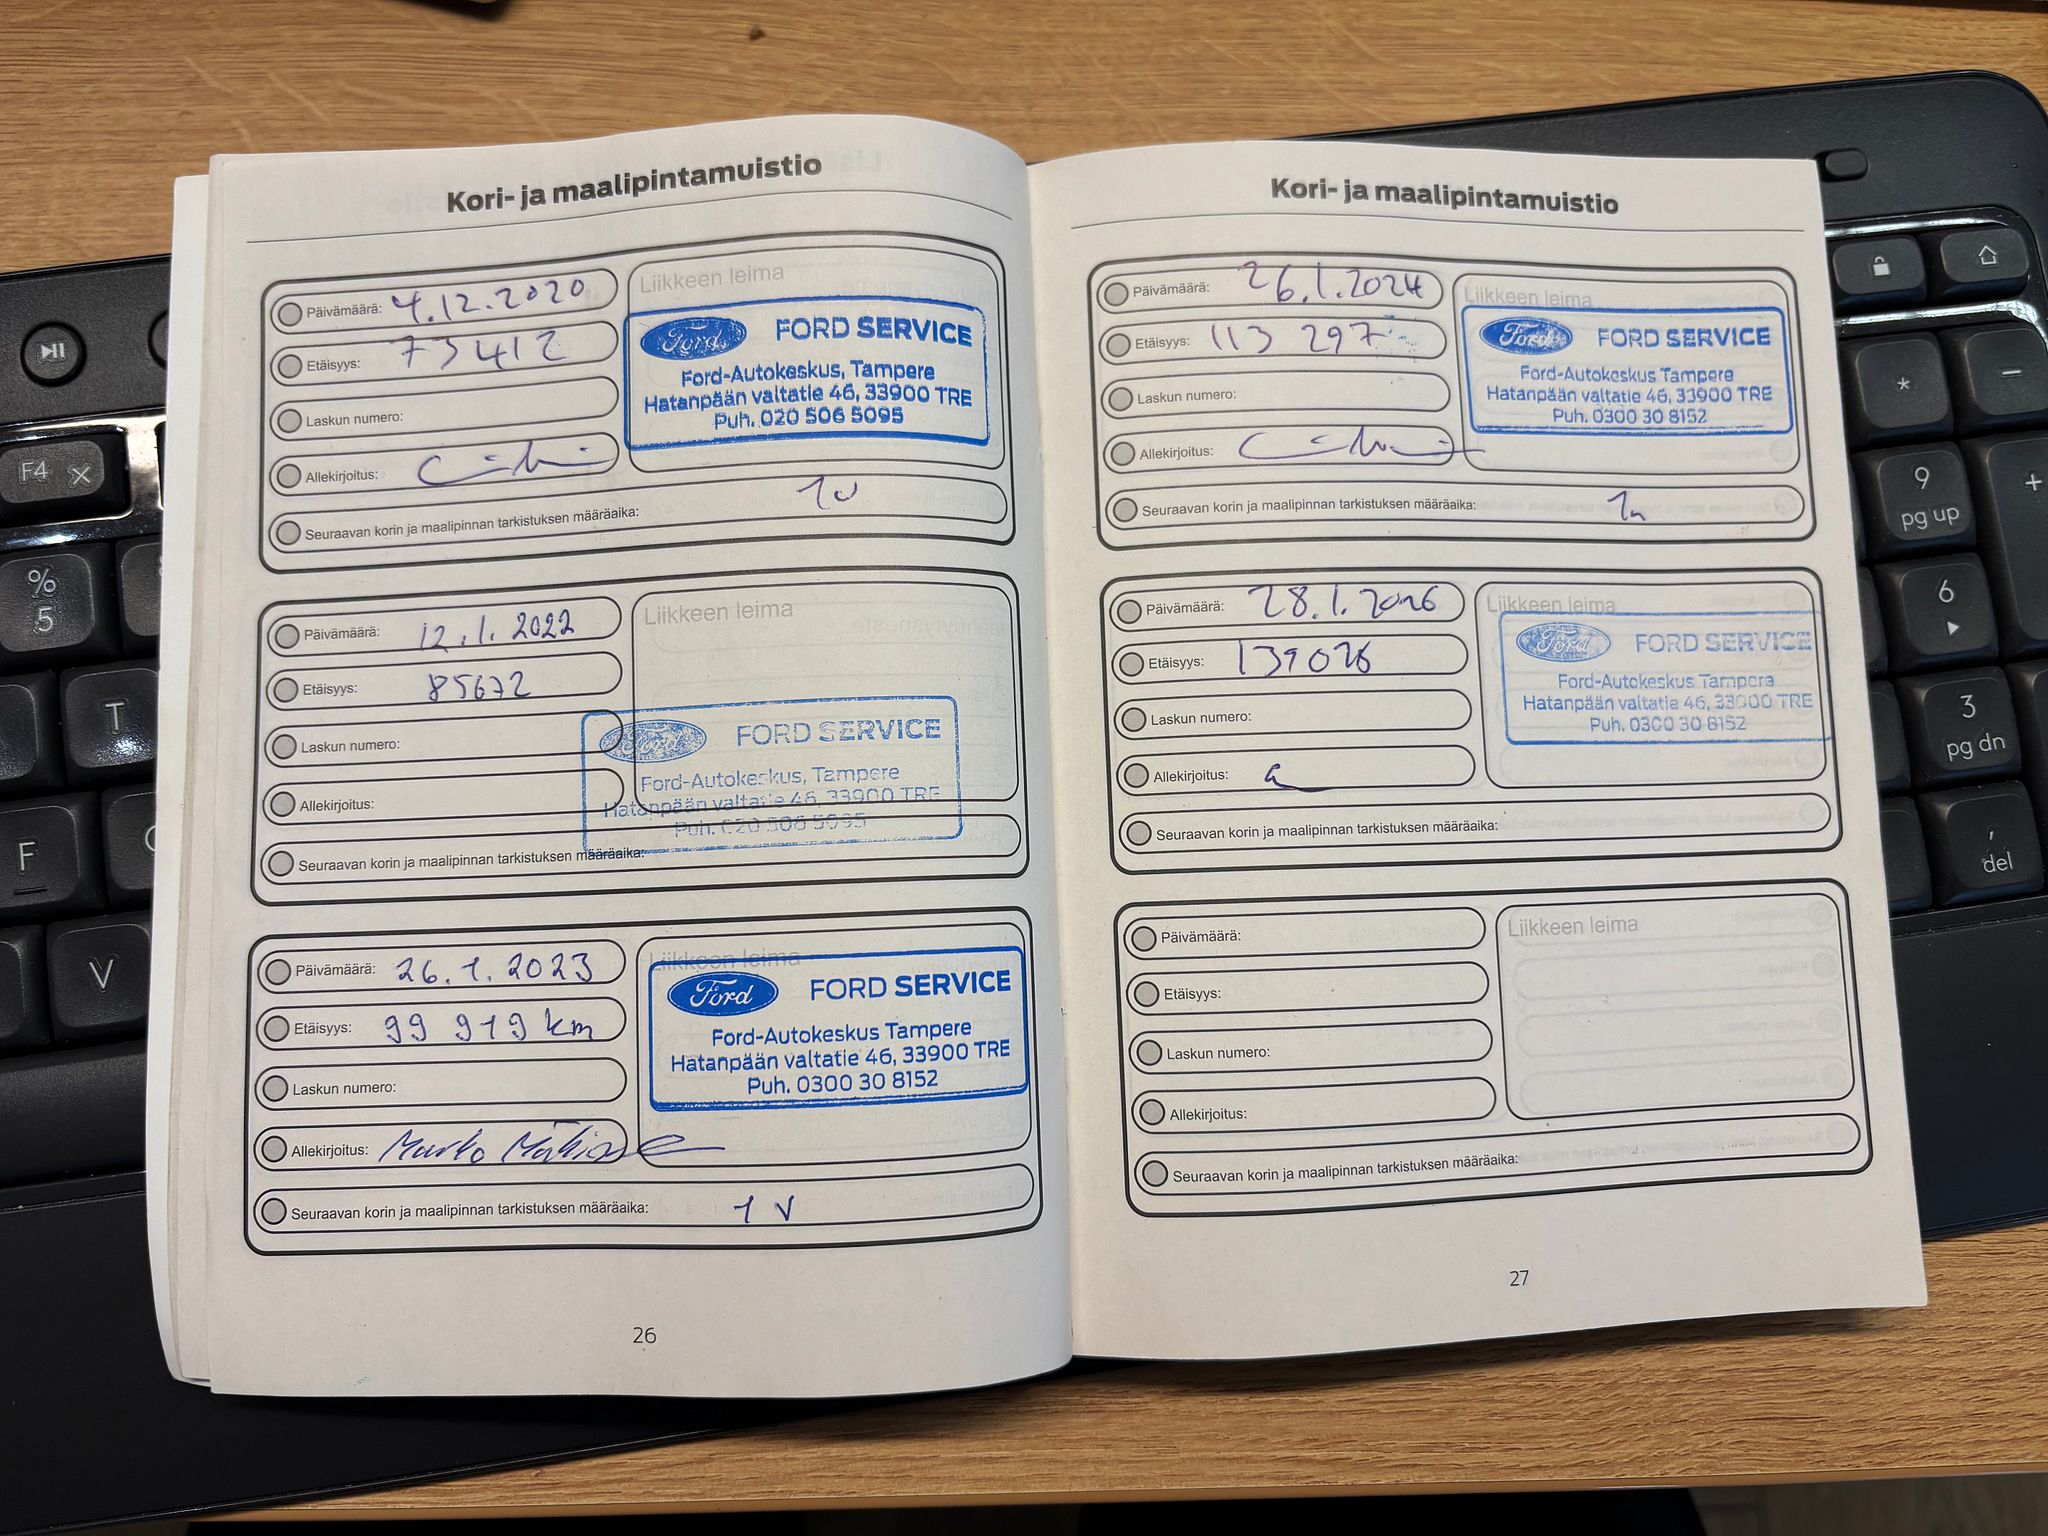 Kori- ja maalipintamuistio
Päivämäärä: 4.12.2020
Etäisyys: 73412
Laskun numero:
Allekirjoitus:
Liikkeen leima
Ford FORD SERVICE
Ford-Autokeskus, Tampere
Hatanpään valtatie 46, 33900 TRE
Puh. 020 506 5095
Seuraavan korin ja maalipinnan tarkistuksen määräaika: 1v
Päivämäärä: 12.1.2022
Etäisyys: 85672
Laskun numero:
Allekirjoitus:
Liikkeen leima
Ford FORD SERVICE
Ford-Autokeskus, Tampere
Hatanpään valtatie 46, 33900 TRE
Puh. 020 506 5095
Seuraavan korin ja maalipinnan tarkistuksen määräaika:
Päivämäärä: 26.1.2023
Etäisyys: 99 919 km
Laskun numero:
Allekirjoitus: Marko
Liikkeen leima
Ford FORD SERVICE
Ford-Autokeskus Tampere
Hatanpään valtatie 46, 33900 TRE
Puh. 0300 30 8152
Seuraavan korin ja maalipinnan tarkistuksen määräaika: 1 v
26
Kori- ja maalipintamuistio
Päivämäärä: 26.1.2024
Etäisyys: 113 297
Laskun numero:
Allekirjoitus:
Liikkeen leima
Ford FORD SERVICE
Ford-Autokeskus Tampere
Hatanpään valtatie 46, 33900 TRE
Puh. 0300 30 8152
Seuraavan korin ja maalipinnan tarkistuksen määräaika: 1v
Päivämäärä: 28.1.2026
Etäisyys: 139026
Laskun numero:
Allekirjoitus:
Liikkeen leima
Ford FORD SERVICE
Ford-Autokeskus Tampere
Hatanpään valtatie 46, 33900 TRE
Puh. 0300 30 8152
Seuraavan korin ja maalipinnan tarkistuksen määräaika:
Päivämäärä:
Etäisyys:
Laskun numero:
Allekirjoitus:
Liikkeen leima
Seuraavan korin ja maalipinnan tarkistuksen määräaika:
27
F4
%
5
T
F
V
*
−
9
pg up
+
6
3
pg dn
,
del